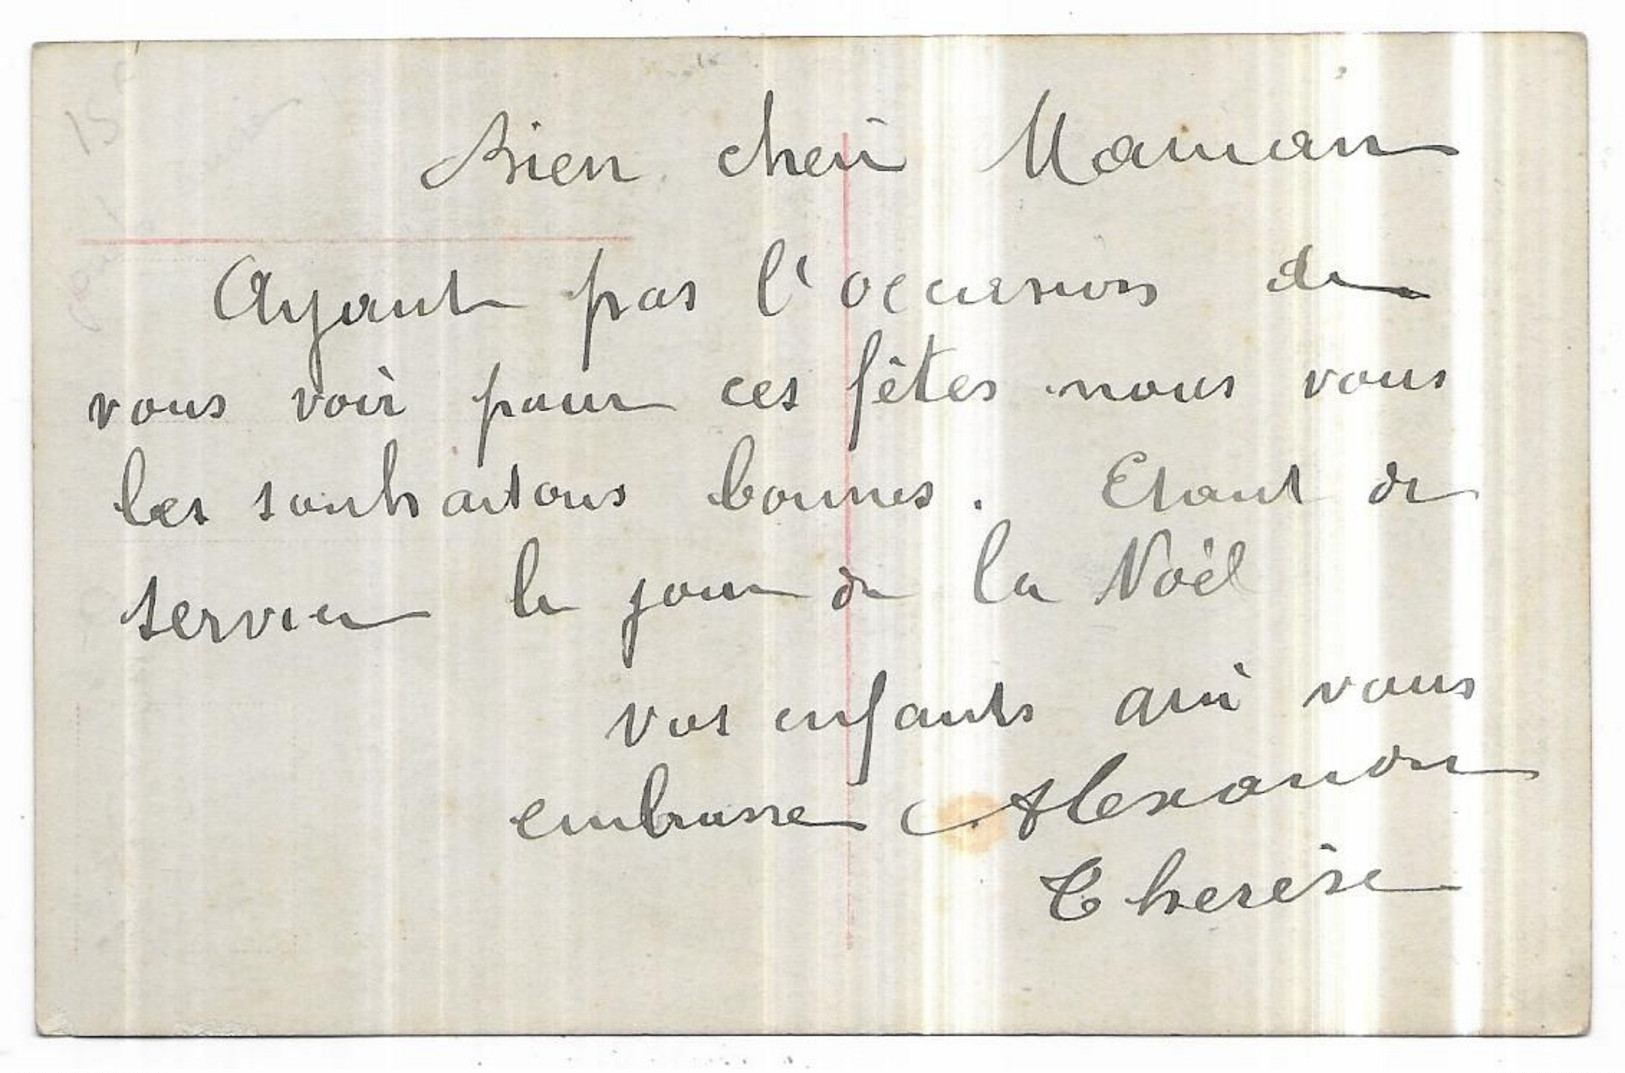 Bien cheri Maman
Ayant pas l'occasion de
vous voir pour ces fêtes nous vous
les souhaitons bonnes. Etant de
service le jour de la Noël
vos enfants qui vous
embrasse Alexandre
Therèse
15